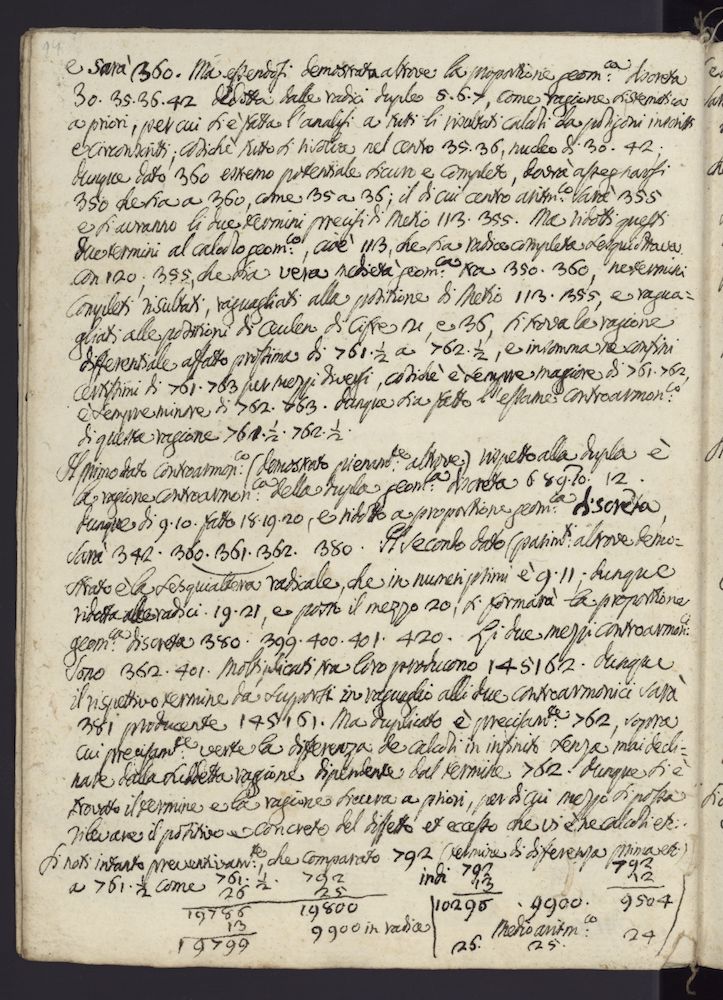 14
e sarà 360. Ma essendosi demostrata altrove la proportione geom.ca discreta
30. 35. 36. 42 dedotta dalle radici duple 5. 6. 7, come ragione sistematica
a priori, per cui si è fatta l'analisi a tutti li risultati calcoli da poligoni inscritti
e circonscritti, cosichè tutto si risolve nel centro 35. 36, nucleo di 30. 42;
dunque dato 360 estremo potentiale sicuro e completo, dovrà assegnarsi
350 che sia a 360, come 35 a 36; il di cui centro aritm.co sarà 355
e si avranno li due termini precisi di Metio 113. 355. Ma ridotti questi
due termini al calcolo geom.co, cioè 113, che sia radice completa sesquiottava
con 120; 355, che sia vera medietà geom.ca tra 350. 360, ne termini
completi risultati, raguagliati alla positione di Metio 113. 355, e ragua=
gliati alle positioni di Ceulen di Cifre 21, e 36, si trova la ragione
differentiale affatto prossima di 761.½ a 762.½, e insomma ne confini
certissimi di 761. 763 per mezzi diversi, cosichè è sempre magiore di 761. 762,
è sempre minore di 762. 763. Dunque sia fatto l'essame controarmon.co
di questa ragione 761.½. 762.½.
Il primo dato controarmon.co (demostrato pienam.te altrove) rispetto alla dupla è
la ragione controarmon.ca della dupla geom.ca discreta 6 8 9 10. 12.
Dunque di 9. 10. fatto 18. 19. 20, e ridotto a proportione geom.ca discreta,
sarà 342. 360. 361. 362. 380. Il secondo dato (parim.ti altrove demo-
strato è la sesquialtera radicale, che in numeri primi è 9. 11; dunque
ridotta alle radici. 19. 21, e posto il mezzo 20, si formarà la proportione
geom.ca discreta 380. 399. 400. 401. 420. Li due mezzi controarmon.ci
sono 362. 401. Moltiplicati tra loro producono 145162. Dunque
il rispettivo termine da supporsi in raguaglio alli due controarmonici sarà
381 producente 145161. Ma duplicato è precisam.te 762, sopra
cui precisam.te verte la differenza de calcoli in infinito senza mai decli-
nare dalla suddetta ragione dipendente dal termine 762. Dunque si è
trovato il termine e la ragione sicura a priori, per di cui mezzo si possa
rilevare il positivo e concreto del difetto et eccesso che vi è ne calcoli etc.
Si noti intanto preventivam.te, che comparato 792 (termine di differenza prima etc)
a 761.½ come 761.½. 792 indi 792 792
26 25 13 12
19786 19800 10296. 9900. 9504
13 9900 in radice Medio aritm.co
19799 26. 25. 24